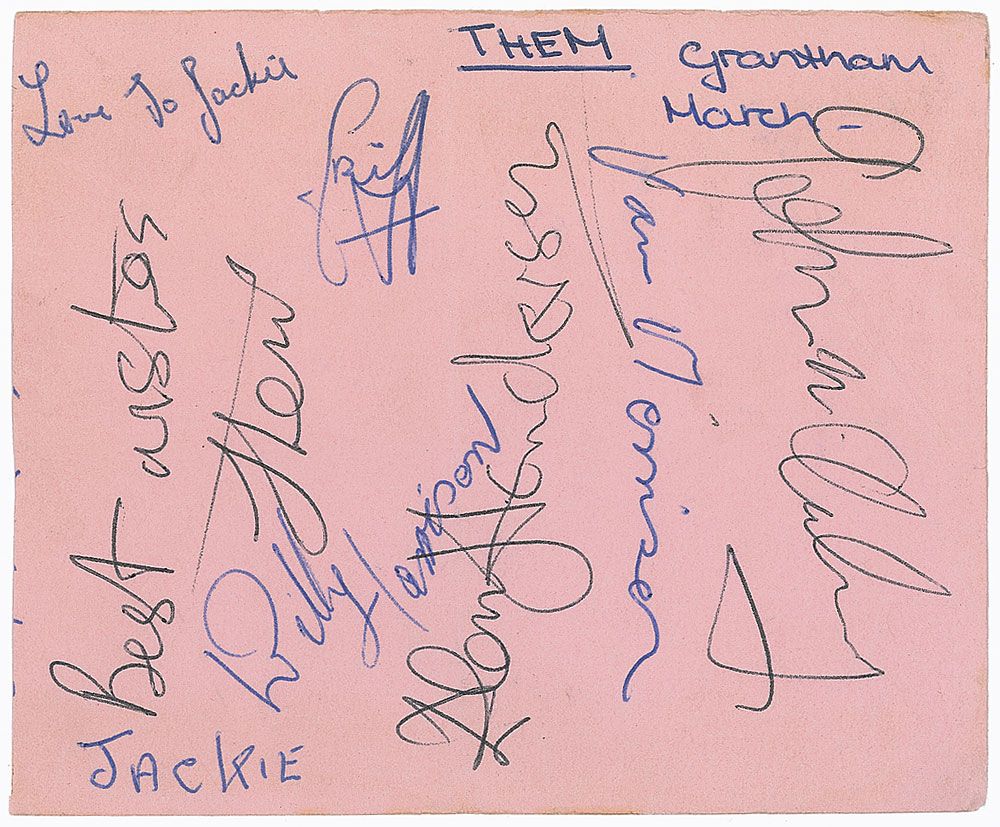 Love To Jackie
THEM
Grantham
March -
Best wishes
Billy Harrison
Alan Henderson
Van Morrison
John
JACKIE